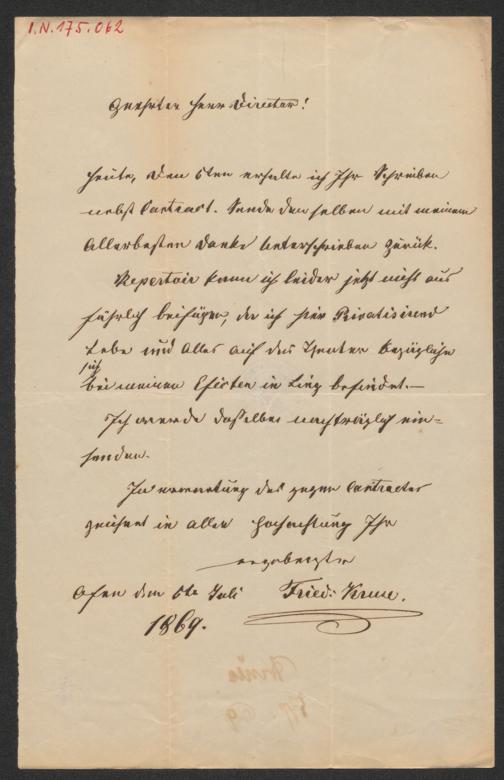 I.N. 175.062
Geehrter Herr Director!
Heute, den 6ten erhalte ich Ihr Schreiben
nebst Contract. Sende denselben mit meinem
Allerbesten Danke Unterschrieben Zurük.
Repertoir kann ich leider jetzt nicht aus
führlich beifügen, da ich hier Privatisirend
Lebe und Alles auf das Theater bezügliche
sich
bei meinen in Linz befindet.—
Ich werde dasselbe nachträglich ein=
senden.
In erwartung des gegen Contractes
zeichnet in aller Hochachtung Ihr
ergebenster
Ofen dem 6te Juli Fried: Kruse.
1869.